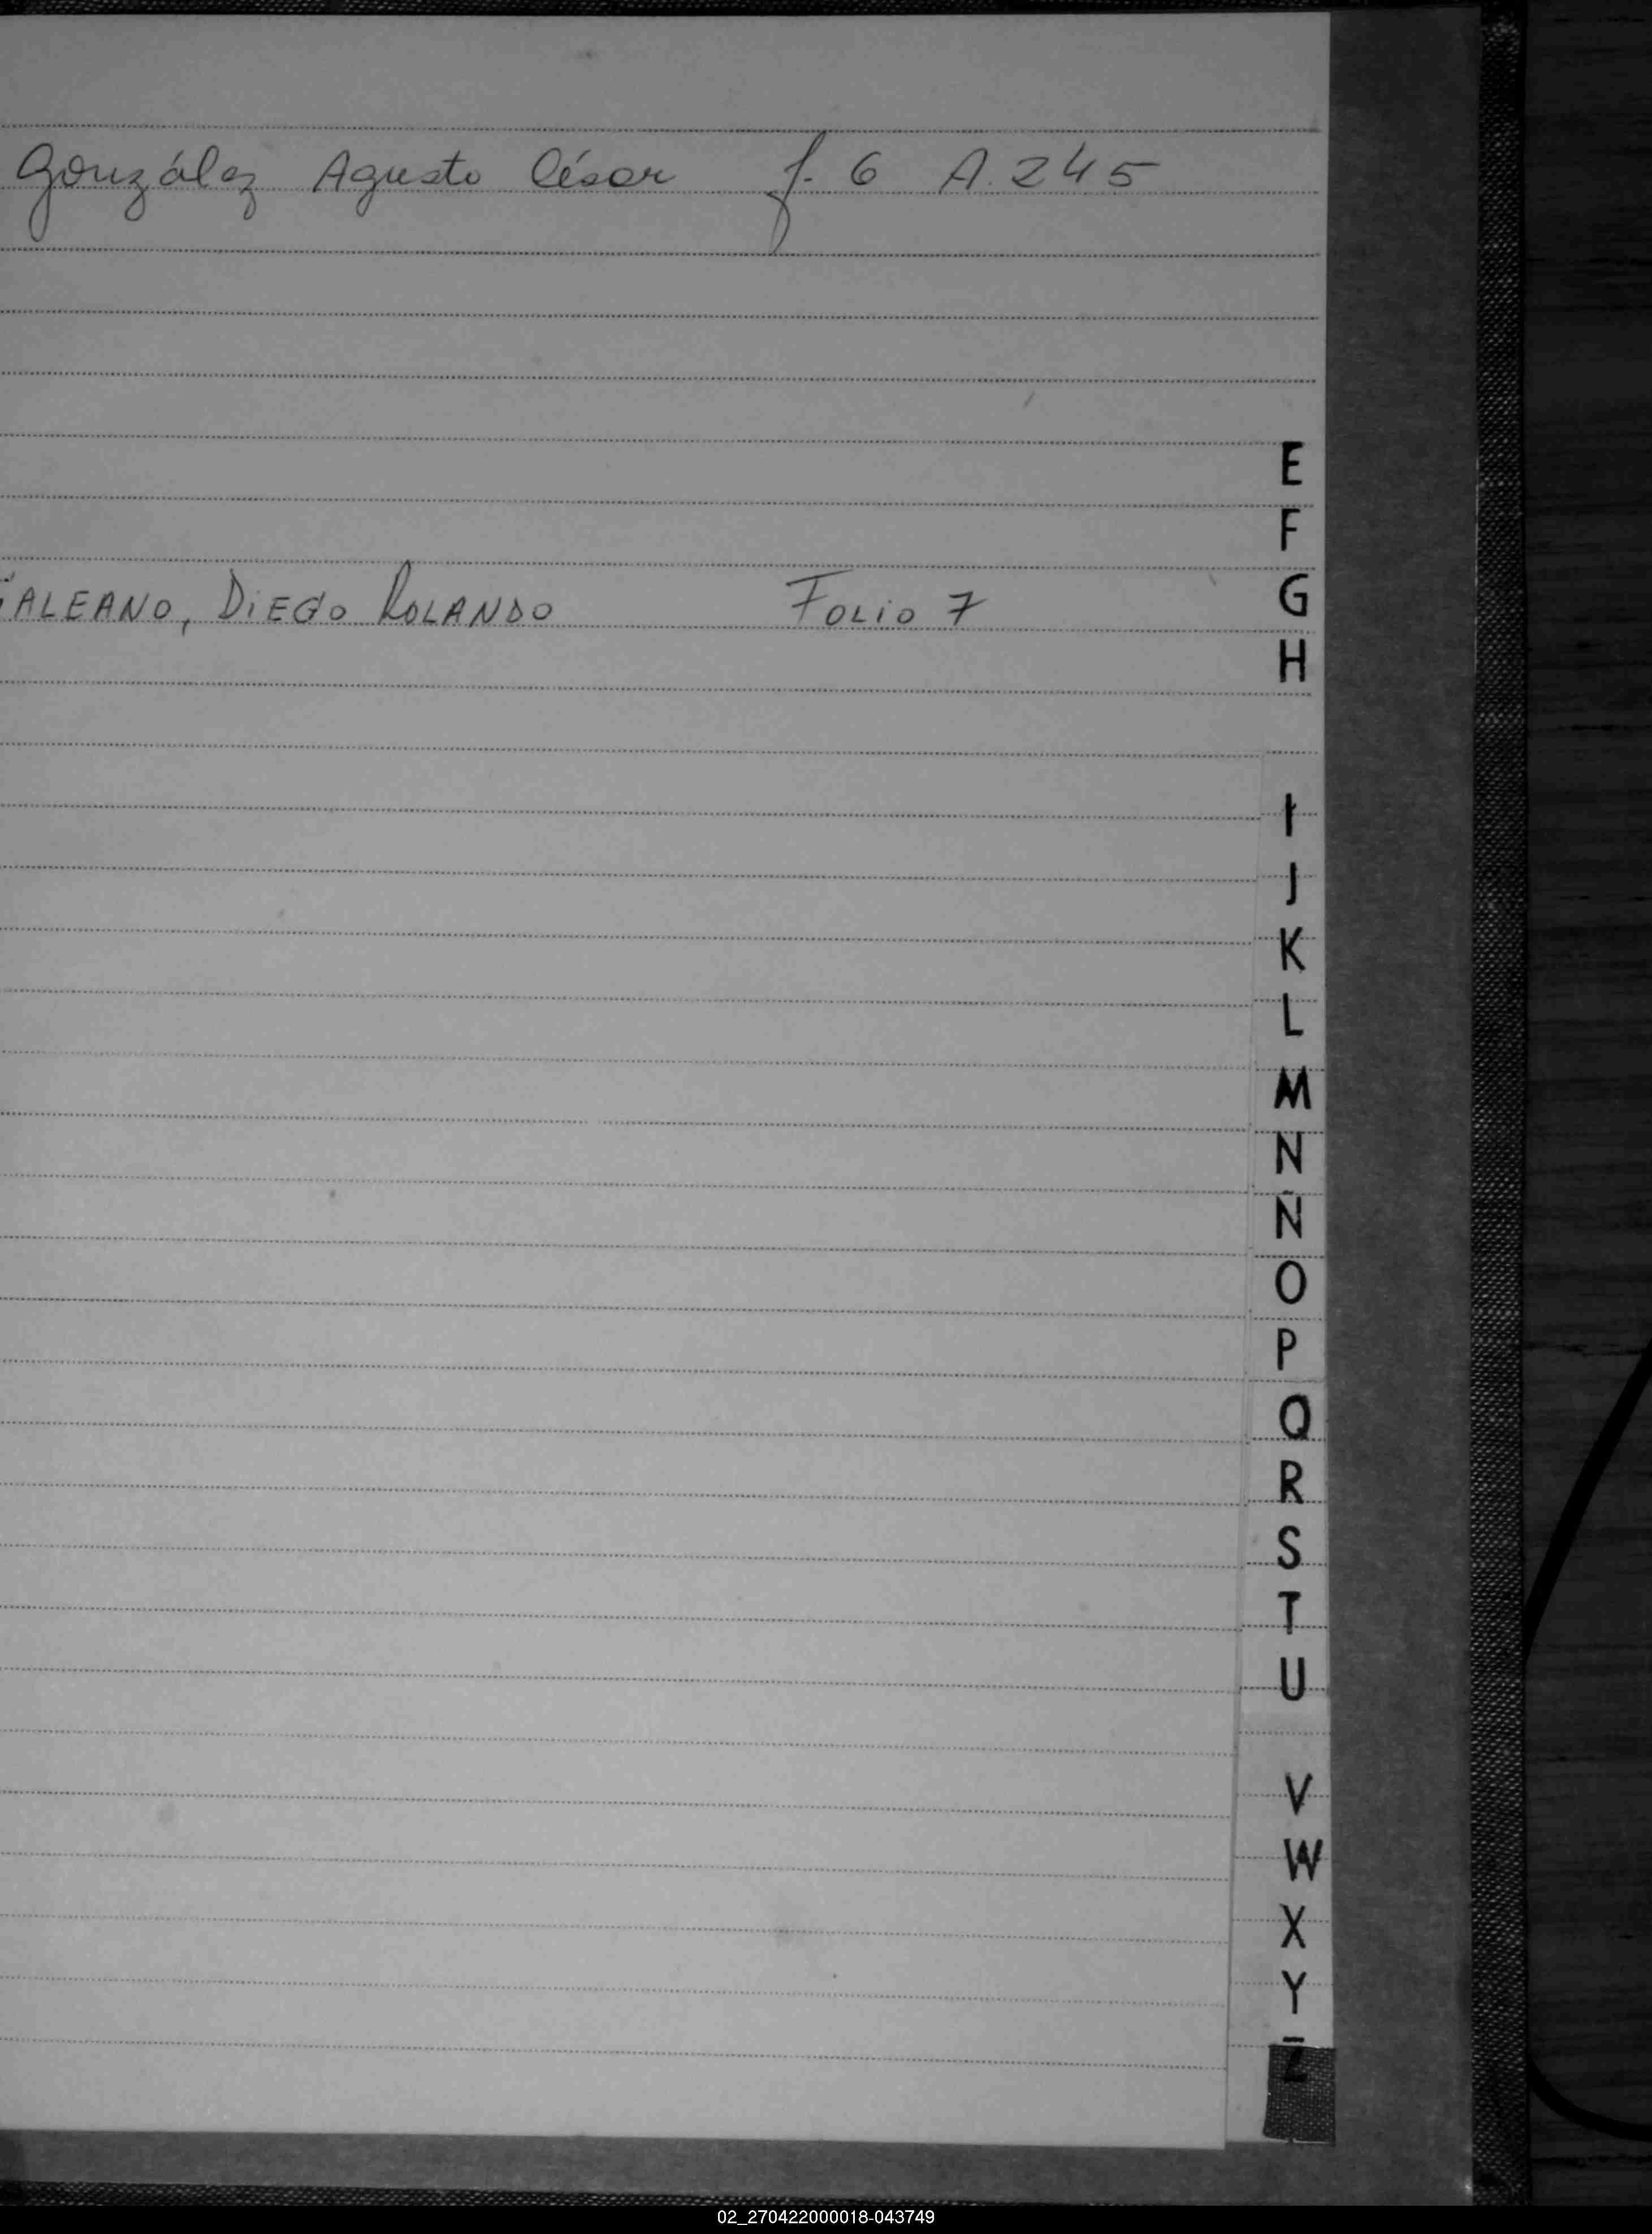 González Agusto César f. 6 A. 245
GALEANO, DIEGO ROLANDO FOLIO 7
E
F
G
H
I
J
K
L
M
N
Ñ
O
P
Q
R
S
T
U
V
W
X
Y
Z
02_270422000018-043749